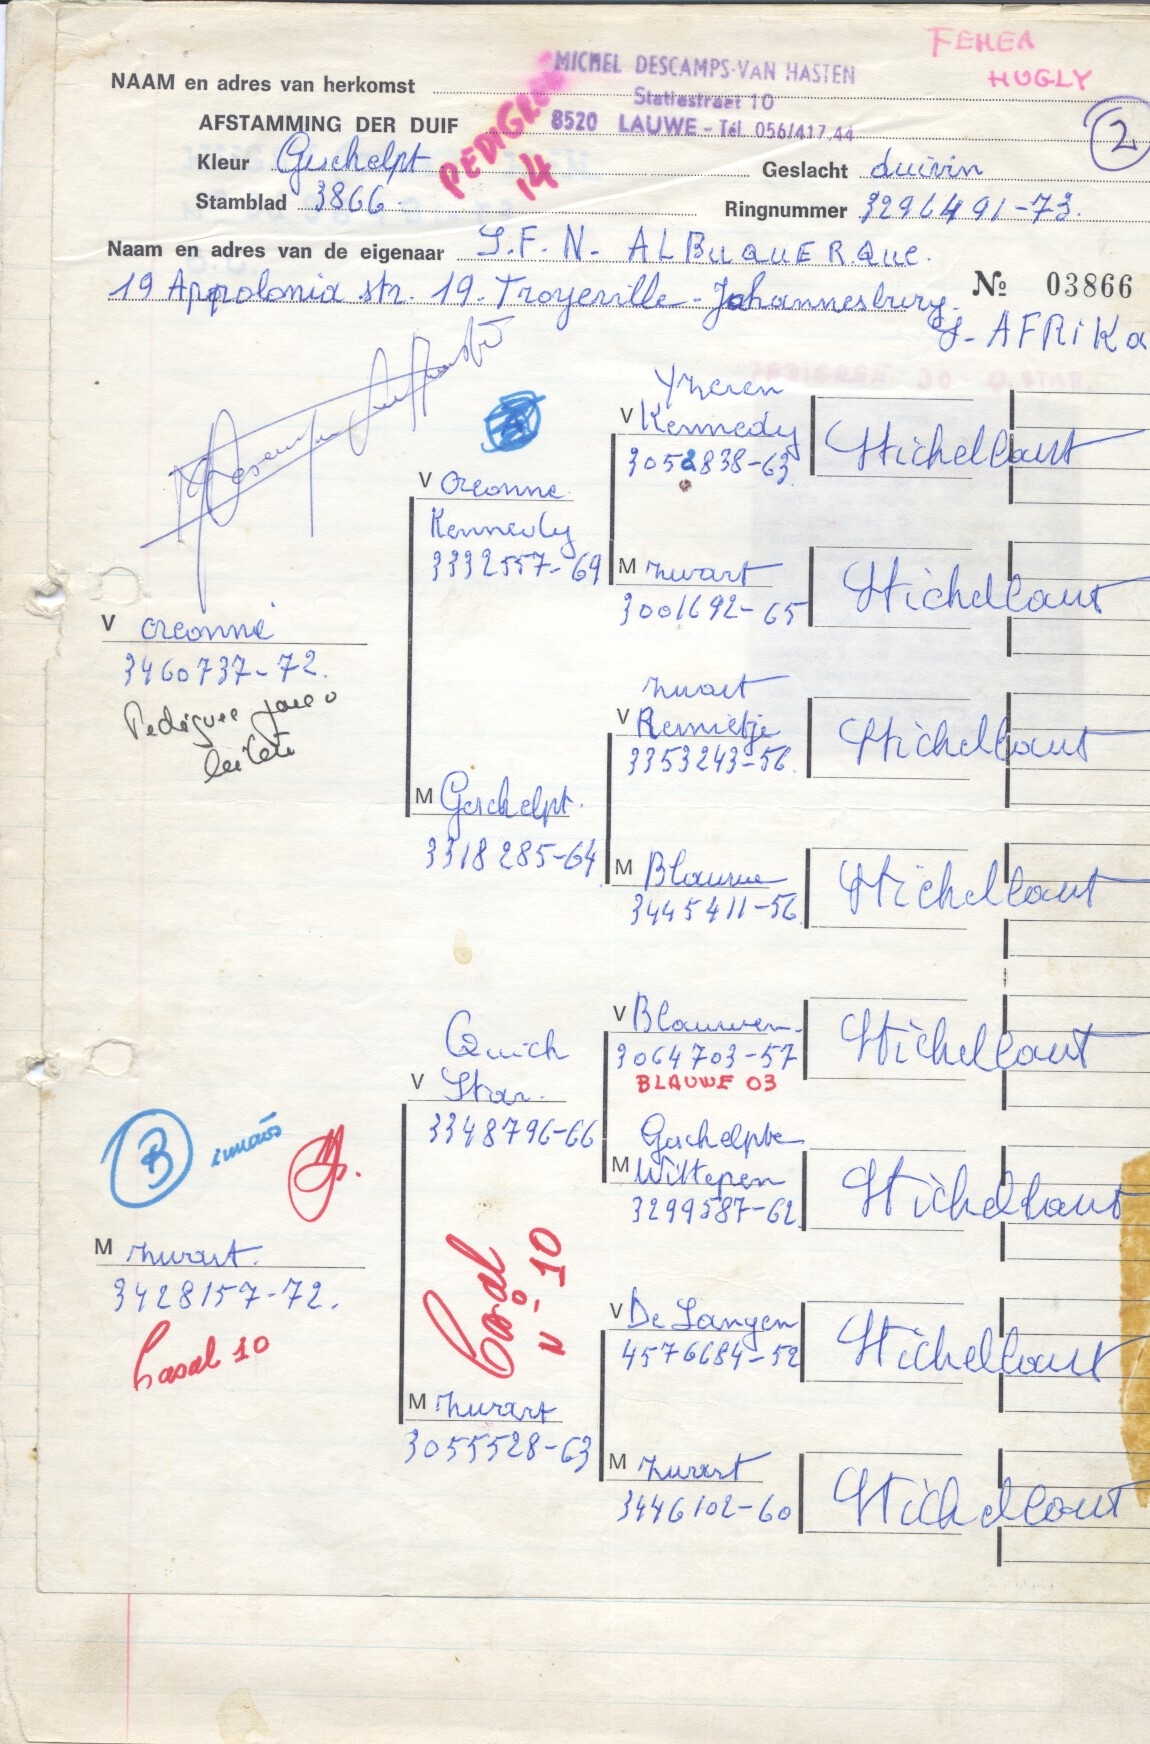 FEMEA
HUGLY
MICHEL DESCAMPS-VAN HASTEN
Statiestraat 10
8520 LAUWE - Tél. 056/417.44
2
NAAM en adres van herkomst
AFSTAMMING DER DUIF
PEDIGREE
14
Kleur Geschelpt
Geslacht duivin
Stamblad 3866
Ringnummer 3296491-73.
Naam en adres van de eigenaar J.F.N. ALBUQUERQUE.
19 Appolonia str. 19. Troyeville - Johannesburg.
No 03866
Z-AFRIKA
V
3460737-72.
Pedigree
V
Kennedy
3332557-69
M Geschelpt.
3318285-64
V Kennedy
3052838-63
Stichelbaut
M Zwart
3001692-65
Stichelbaut
Zwart
V Remietje
3353243-56
Stichelbaut
M Blauwe
3445411-56
Stichelbaut
B irmãos
M Zwart.
3428157-72.
Casal 10
Quick
V Star.
3348796-66
Casal
Nº 10
M Zwart
3055528-63
V Blauwen
3064703-57
BLAUWE 03
Stichelbaut
Geschelpte
M Wittepen
3299587-62
Stichelbaut
V De Langen
4576684-52
Stichelbaut
M Zwart
3446102-60
Stichelbaut